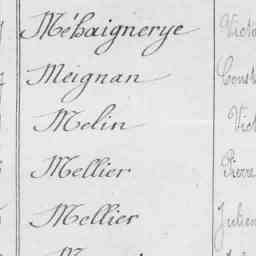 Méhaignerye Victo
Meignan Const
Melin Vict
Mellier Pierre
Mellier Julien